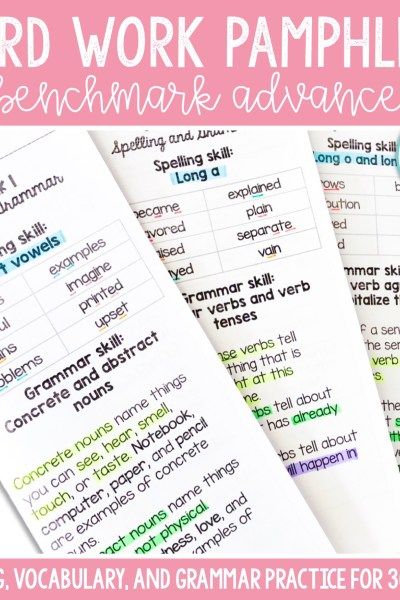 RD WORK PAMPHLE
benchmark advance
k 1
Grammar
ng skill:
t vowels
examples
imagine
printed
ul
ins
upset
oblems
Grammar skill:
Concrete and abstract
nouns
Concrete nouns name things
you can see, hear, smell,
touch, or taste. Notebook,
computer, paper, and pencil
are examples of concrete
nouns.
act nouns name things
not physical.
ness, love, and
of
Spelling and Gram
Spelling skill:
Long a
became
explained
avored
plain
aised
separate
yed
vain
Grammar skill:
r verbs and verb
tenses
nse verbs tell
thing that is
t at this
e.
bs tell about
has already
bs tell about
ill happen in
Spelling
Spelling skill:
Long o and lon
rows
b
bution
red
d
rammar sk
verb ag
pitalize t
of a sen
the sen
must
G, VOCABULARY, AND GRAMMAR PRACTICE FOR 3